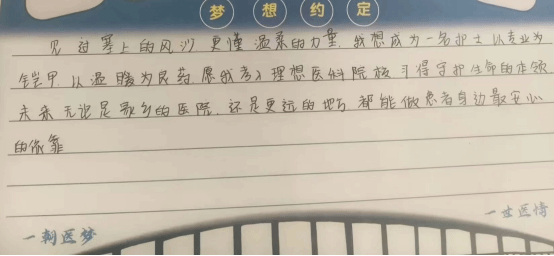 梦想约定
见过塞上的风沙 更懂温柔的力量. 我想成为一名护士 以专业为
铠甲. 以温暖为良药 愿我考入理想医科院校 习得守护生命的本领
未来无论是家乡的医院. 还是更远的地方 都能做患者身边最安心
的依靠
一世医情
一朝医梦